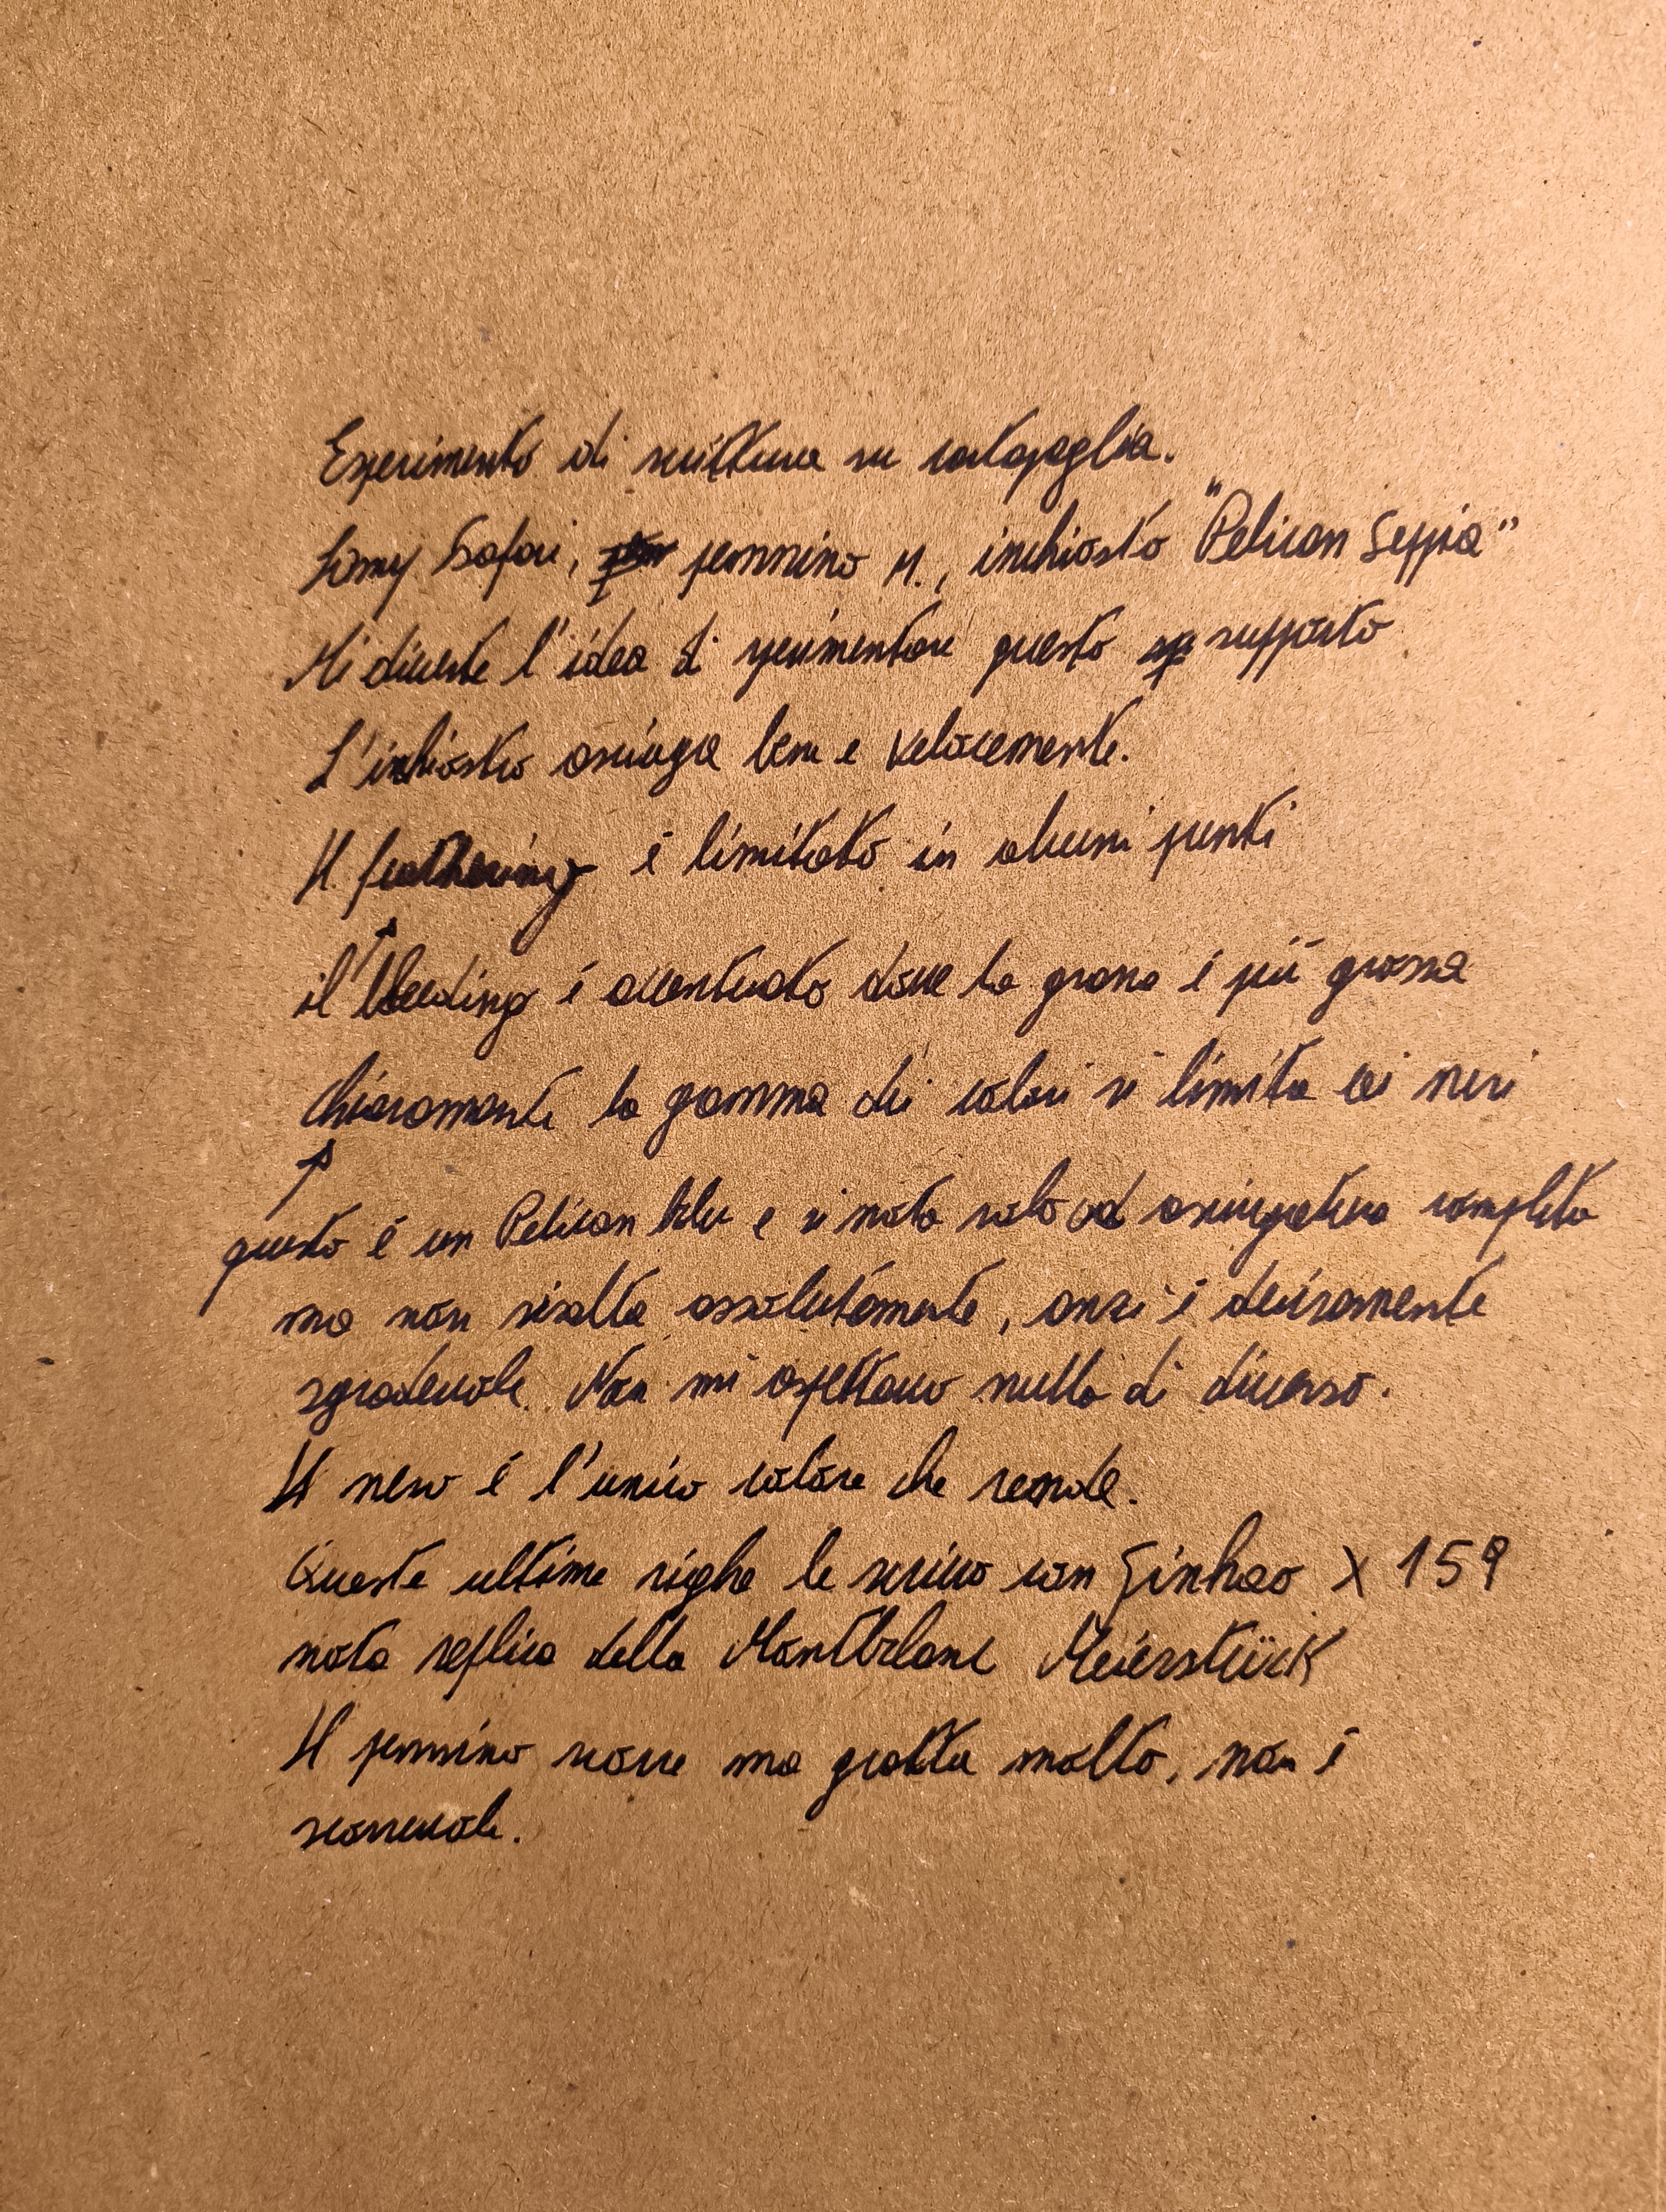 Esperimento di scrittura su cartapaglia.
Lamy Safari, pennino M., inchiostro "Pelican Seppia"
Mi diverte l'idea di sperimentare questo supporto
L'inchiostro asciuga bene e velocemente.
Il feathering è limitato in alcuni punti
il bleeding è accentuato dove la grana è più grossa
Chiaramente la gamma dei colori si limita ai neri
questo è un Pelican blu e si nota solo ad asciugatura completa
ma non risalta assolutamente, anzi è decisamente
sgradevole. Non mi aspettavo nulla di diverso.
Il nero è l'unico colore che rende.
Queste ultime righe le scrivo con Jinhao X 159
nota replica della MontBlanc Meierstück
Il pennino scorre ma gratta molto, non è
scorrevole.